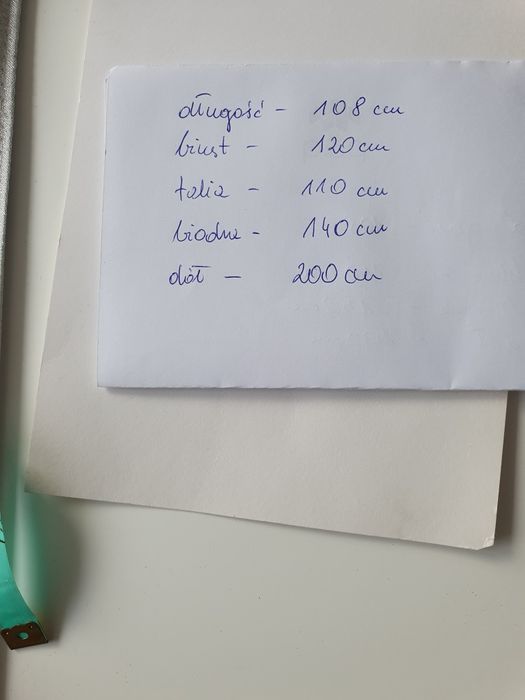 długość - 108 cm
biust - 120 cm
talia - 110 cm
biodra - 140 cm
dół - 200 cm